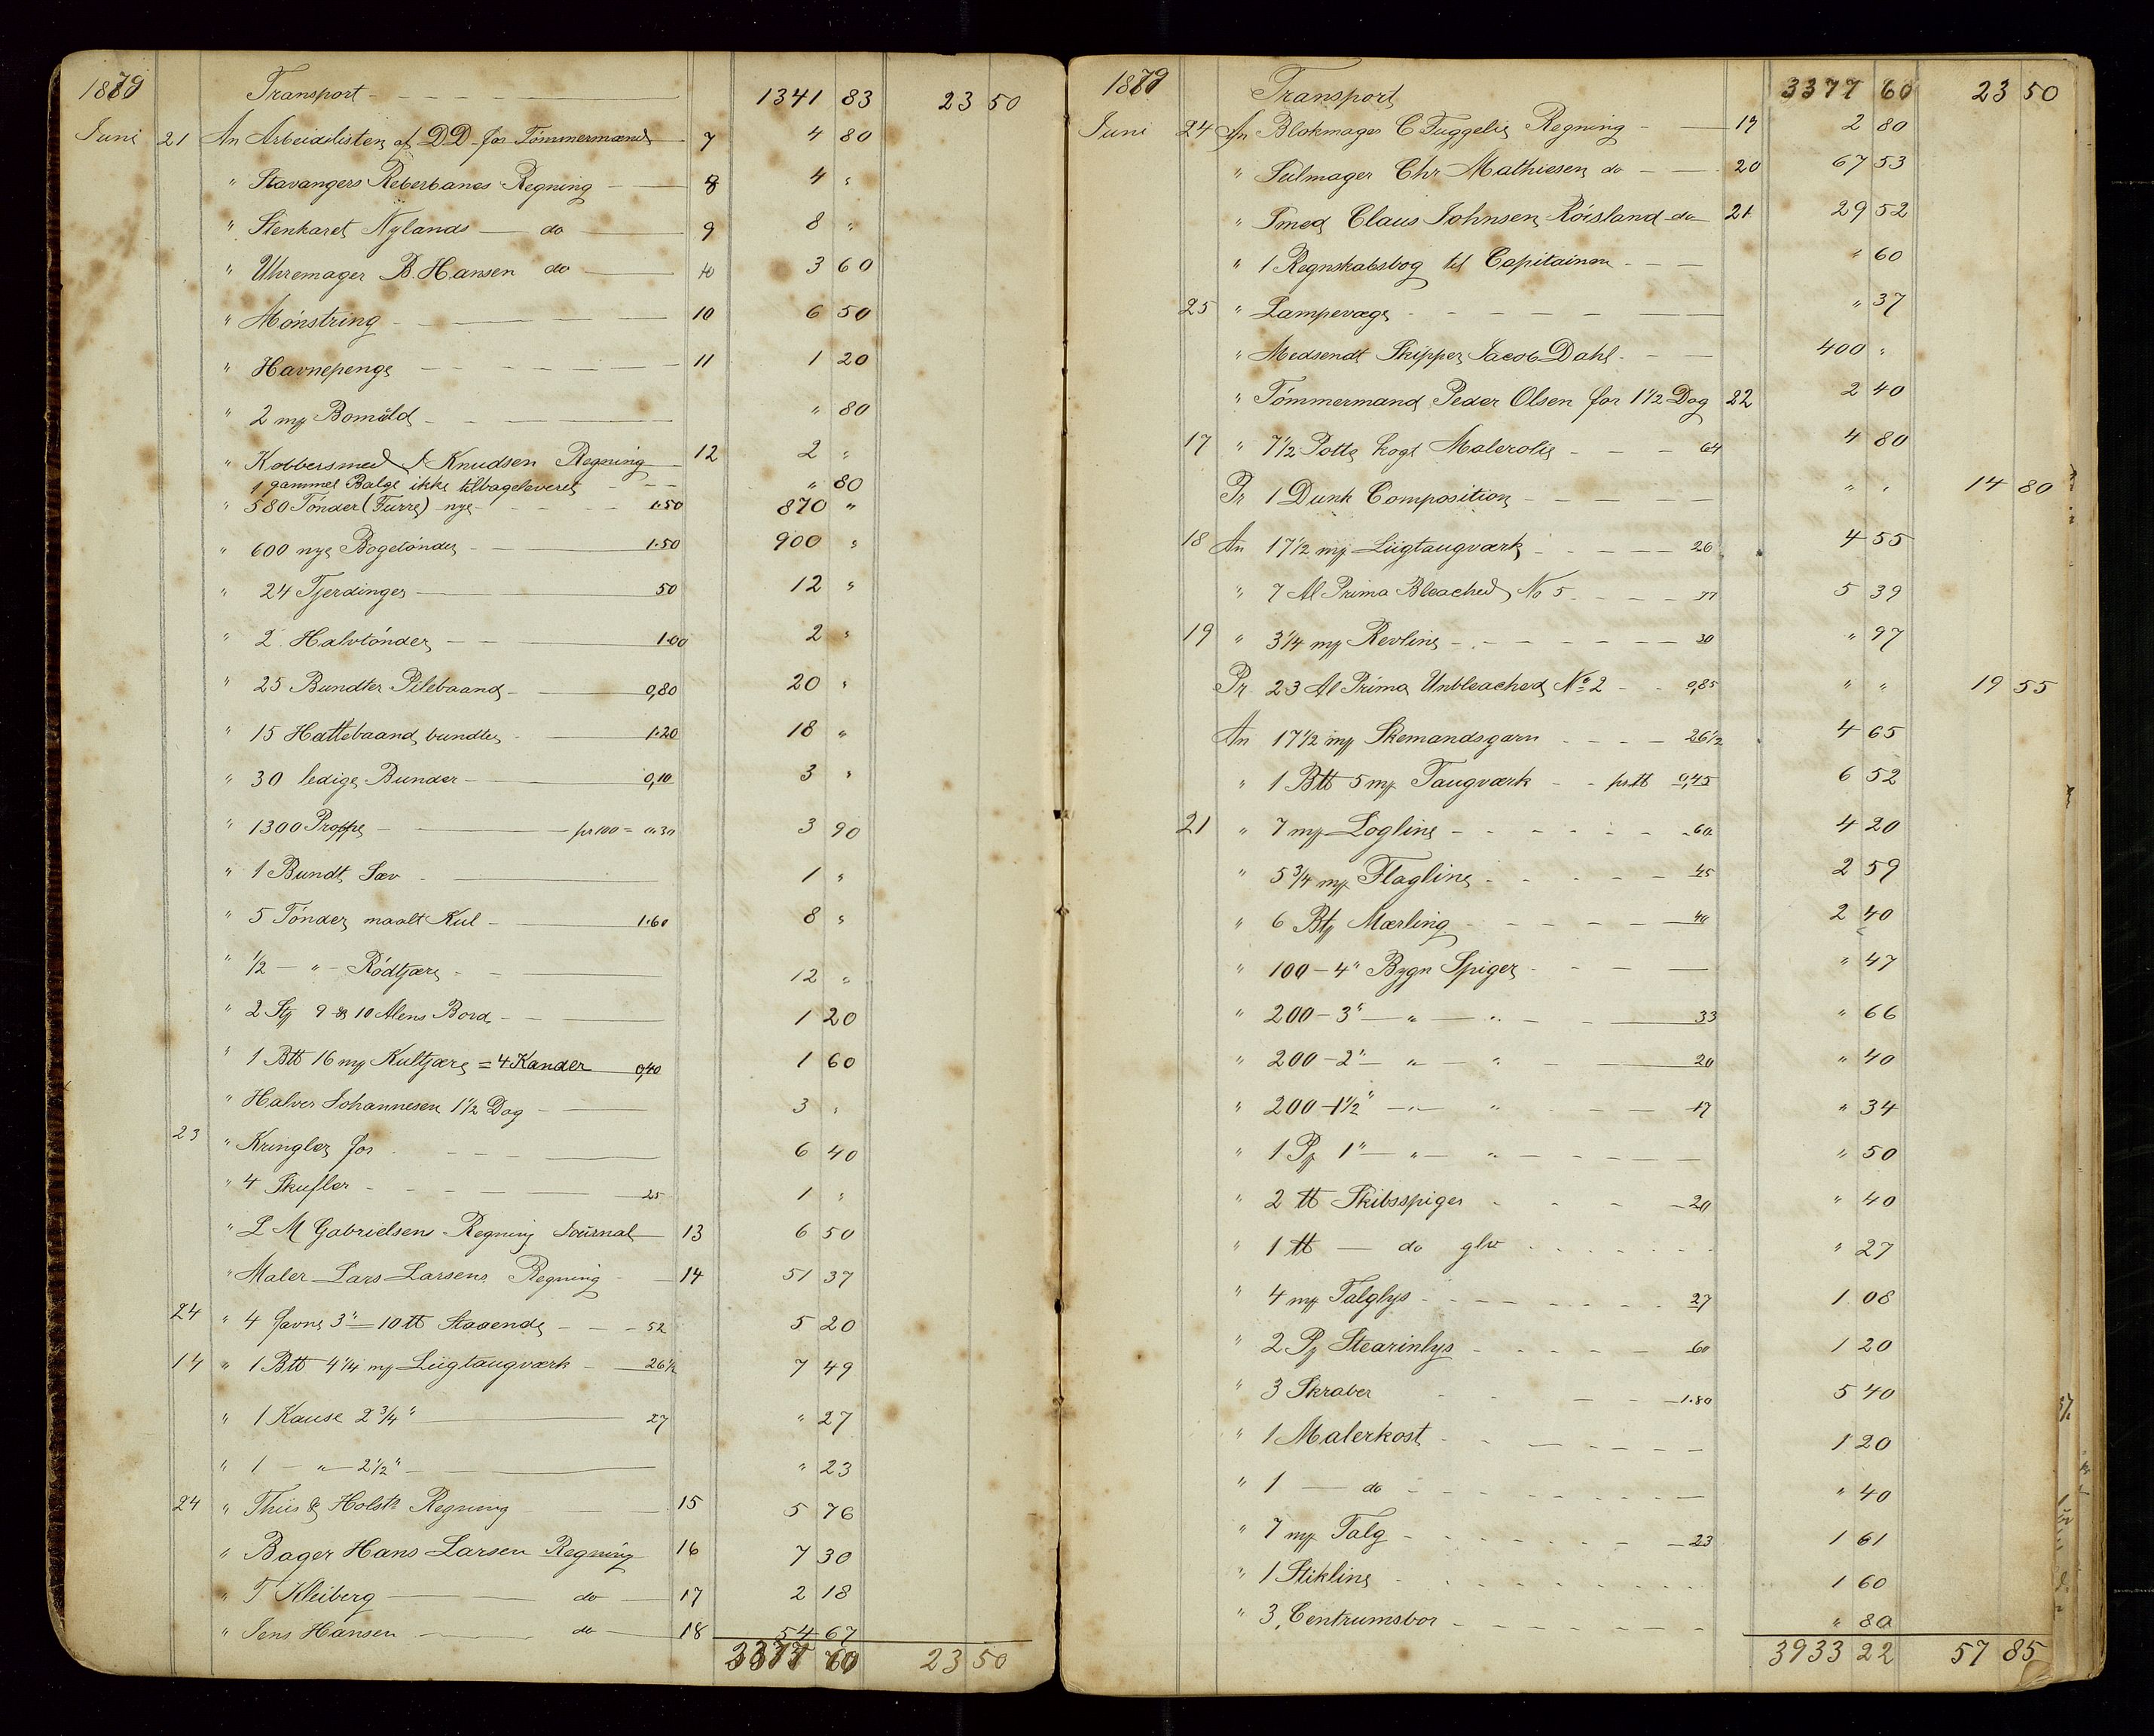 1879 Transport 1341 83 23 50
Juni 21 An Arbeidslisten af DD for Tømmermænd 7 4 80
" Stavangers Reberbanes Regning 8 4 "
" Stenkaret Nylands do 9 8 "
" Uhremager B. Hansen do 10 3 60
" Mønstring 10 6 50
" Havnepenge 11 1 20
" 2 mp Bomuld " 80
" Kobbersmed Knudsen Regning 12 2 "
1 gammel Balge ikke tilbageleveret " 80
" 580 Tønder (Furre) nye 1.50 870 "
" 600 nye Bøgetønder 1.50 900 "
" 24 Fjerdinger 50 12 "
" 2 Halvtønder 1.00 2 "
" 25 Bundter Pilebaand 0,80 20 "
" 15 Hattebaand, bundter 1.20 18 "
" 30 ledige Bunder 0,10 3 "
" 1300 Proppe pr 100 = 0.30 3 90
" 1 Bundt Sæv 1 "
" 5 Tønder maalt Kul 1.60 8 "
" 1/2 — " — Rødtjære 12 "
" 2 Stp 9 & 10 Alens Bord 1 20
" 1 Btt 16 mp Kultjære = 4 Kander 0,40 1 60
" Halvor Johannesen 1 1/2 Dag 3 "
23 " Kringler for 6 40
" 4 Skufler 25 1 "
" L M Gabrielsens Regning Journal 13 6 50
" Maler Lars Larsens Regning 14 51 37
24 " 4 favne 3" = 10 tt Staaende 52 5 20
14 " 1 Btt 4 1/4 mp Liigtaugværk 26 1/2 7 49
" 1 Kause 2 3/4" 27 " 27
" 1 — " — 2 1/2" " 23
24 " Thiis & Holsts Regning 15 5 76
" Bager Hans Larsen Regning 16 7 30
" T Kleiberg do 17 2 18
" Jens Hansen do 18 54 67
3377 60 23 50
1879 Transport 3377 60 23 50
Juni 24 An Blokmager C Tuggelis Regning 19 2 80
" Salmager Chr Mathiesen do 20 67 53
" Smed Claus Johnsen Røisland do 21 29 52
" 1 Regnskabsbog til Capitainen " 60
25 " Lampevæge " 37
" Medsendt Skipper Jacob Dahl 400 "
" Tømmermand Peder Olsen for 1 1/2 Dag 22 2 40
17 " 7 1/2 Potte kogt Malerolie 64 4 80
Pr 1 Dunk Composition " " 14 80
18 An 17 1/2 mp Liigtaugværk 26 4 55
" 7 Al Prima Bleached No 5 77 5 39
19 " 3 1/4 mp Revline 30 " 97
Pr 23 Al Prima Unbleached No 2 0,85 " " 19 55
An 17 1/2 mp Skemandsgarn 26 1/2 4 65
" 1 Btt 5 mp Taugværk pr tt 0,45 6 52
21 " 7 mp Logline 60 4 20
" 5 3/4 mp Flagline 45 2 59
" 6 Btp Mærling 40 2 40
" 100 - 4" Bygn Spiger " 47
" 200 - 3" — " — " 33 " 66
" 200 - 2" — " — " 20 " 40
" 200 - 1 1/2" — " — " 17 " 34
" 1 Pp 1" — " — " " 50
" 2 tt Skibsspiger 20 " 40
" 1 tt — do glv " 27
" 4 mp Talglys 27 1 08
" 2 Pp Stearinlys 60 1 20
" 3 Skraber 1.80 5 40
" 1 Malerkost 1 20
" 1 — do " 40
" 7 mp Talg 23 1 61
" 1 Stikline 1 60
" 3 Centrumsbor " 80
3933 22 57 85